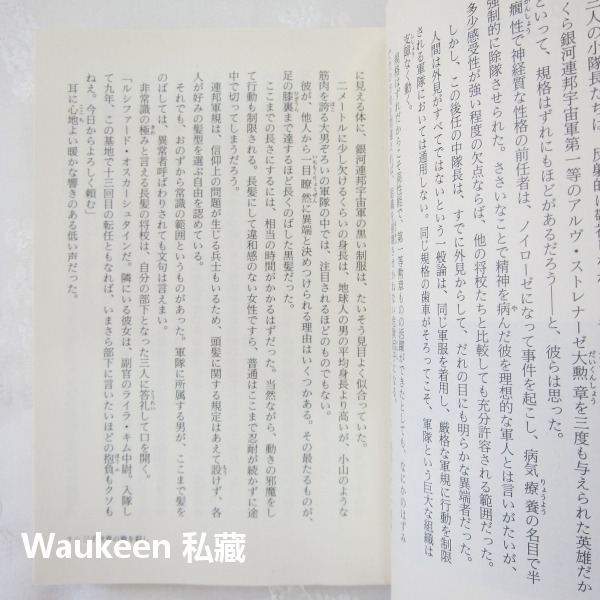 三人の小隊長たちは、反射的に
くら銀河連邦宇宙軍第一等のアルヴ・ストレナーゼ大勲章を三度も与えられた英雄だか
といって、規格はずれにもほどがあるだろう――と、彼らは思った。
癇性で神経質な性格の前任者は、ノイローゼになって事件を起こし、病気療養の名目で半
強制的に除隊させられた。ささいなことで精神を病んだ彼を理想的な軍人とは言いがたいが、
多少感受性が強い程度の欠点ならば、他の将校たちと比較しても充分許容される範囲だった。
しかし、この後任の中隊長は、すでに外見からして、だれの目にも明らかな異端者だった。
人間は外見がすべてではないという一般論は、同じ軍服を着用し、厳格な軍規に行動を制限
される軍隊においては通用しない。同じ規格の歯車がそろってこそ、軍隊という巨大な組織は
支障なく動く。
に見える体に、銀河連邦宇宙軍の黒い制服は、たいそう見目よく似合っていた。
二メートルに少し欠けるくらいの身長は、地球人の男の平均身長より高いが、小山のような
筋肉を誇る大男ぞろいの軍隊の中では、注目されるほどのものでもない。
彼が、他人から一目瞭然に異端と決めつけられる理由はいくつかある。その最たるものが、
足の膝裏まで達するほど長くのばした黒髪だった。
ここまでの長さにするには、相当の時間がかかるはずだった。当然ながら、動きの邪魔をし
て行動も制限される。長髪にして違和感のない女性ですら、普通はここまで忍耐が続かずに途
中で切ってしまうだろう。
連邦軍規は、信仰上の問題が生じる兵士もいるため、頭髪に関する規定はあえて設けず、各
人が好みの髪型を選ぶ自由を認めている。
それでも、おのずから常識の範囲というものがあった。軍隊に所属する男が、ここまで髪を
のばしては、異常者呼ばわりされても文句は言えまい。
非常識の極みと言える長髪の将校は、自分の部下となった三人に答礼して口を開く。
「ルシファード・オスカーシュタインだ。隣にいる彼女は、副官のライラ・キム中尉。入隊し
て九年、この基地で十三回目の転任ともなれば、いまさら部下に言いたいほどの抱負もクソも
ねえ。今日からよろしく頼む」
耳に心地よい暖かな響きのある低い声だった。
Waukeen 私藏